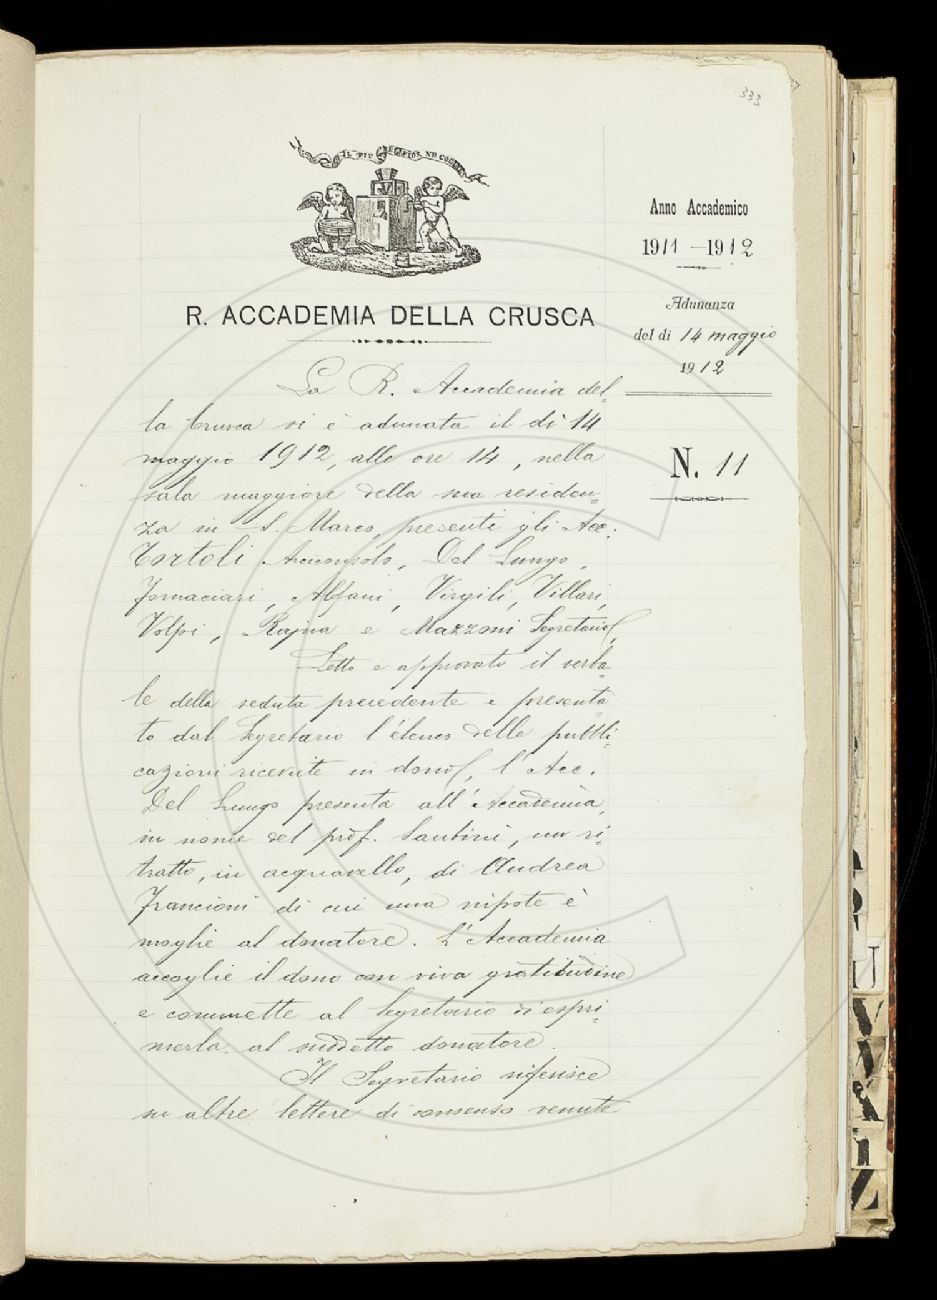 333
IL PIÙ BEL FIOR NE COGLIE
R. ACCADEMIA DELLA CRUSCA
Anno Accademico
1911 - 1912
Adunanza
del dì 14 maggio
1912
N. 11
La R. Accademia del-
la Crusca si è adunata il dì 14
maggio 1912, alle ore 14, nella
sala maggiore della sua residen-
za in S. Marco, presenti gli Acc.
Tortoli Arciconsolo, Del Lungo,
Fornaciari, Alfani, Virgili, Villari,
Volpi, Rajna e Mazzoni Segretario.
Letto e approvato il verba-
le della seduta precedente e presenta-
to dal Segretario l'elenco delle pubbli-
cazioni ricevute in dono, l'Acc.
Del Lungo presenta all'Accademia,
in nome del prof. Santini, un ri-
tratto, in acquarello, di Andrea
Francioni di cui una nipote è
moglie al donatore. L'Accademia
accoglie il dono con viva gratitudine
e commette al Segretario di espri-
merla al suddetto donatore.
Il Segretario riferisce
su altre lettere di consenso venute